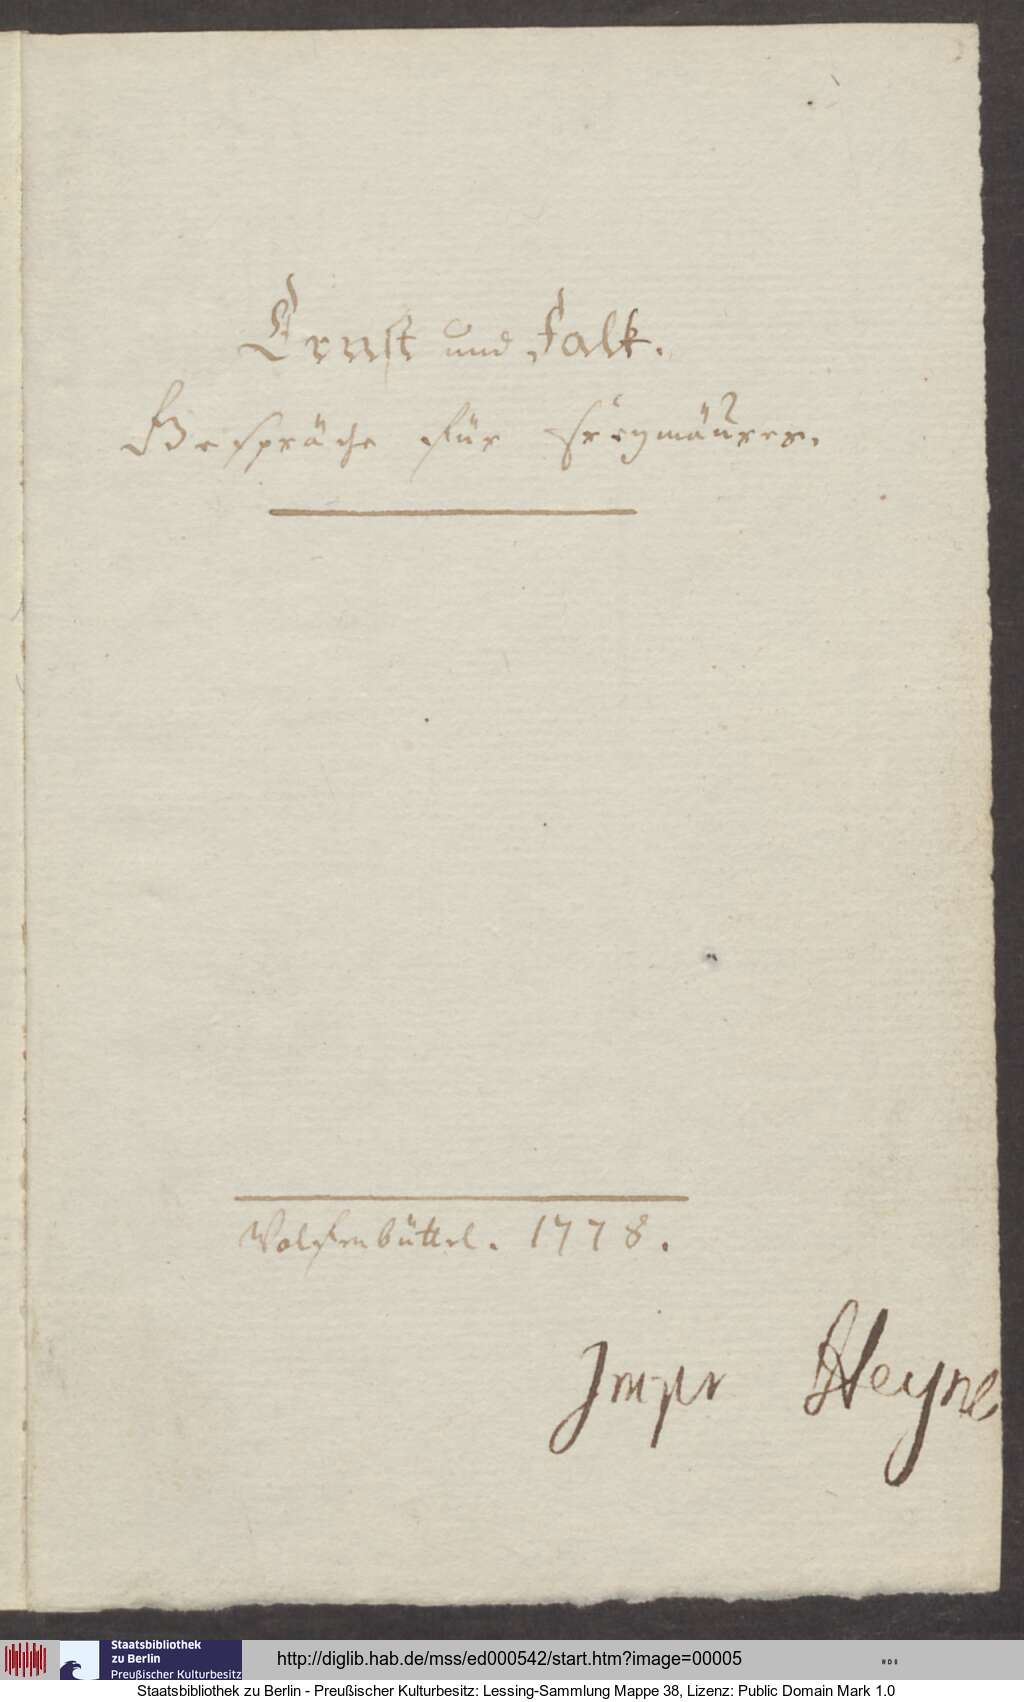 Ernst und Falk.
Gespräche für Freymäurer.
Wolfenbüttel. 1778.
Impr Heyne
Staatsbibliothek
zu Berlin
Preußischer Kulturbesitz
http://diglib.hab.de/mss/ed000542/start.htm?image=00005
Staatsbibliothek zu Berlin - Preußischer Kulturbesitz: Lessing-Sammlung Mappe 38, Lizenz: Public Domain Mark 1.0